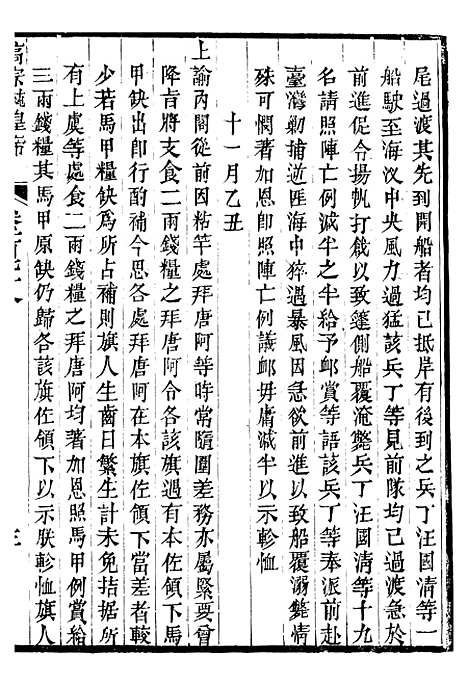 尾過渡其先到開船者均已抵岸有後到之兵丁汪國清等一
船駛至海汊中央風力過猛該兵丁等見前隊均已過渡急於
前進促令揚帆打戧以致篷側船覆淹斃兵丁汪國清等十九
名請照陣亡例減半之半給予䘏賞等語該兵丁等奉派前赴
臺灣勦捕逆匪海中猝遇暴風因急欲前進以致船覆溺斃情
殊可憫著加恩卽照陣亡例議䘏毋庸減半以示軫恤
十一月乙丑
上諭內閣從前因粘竿處拜唐阿等時常隨圍差務亦屬緊要曾
降旨將支食二兩錢糧之拜唐阿令各該旗遇有本佐領下馬
甲缺出卽行酌補今思各處拜唐阿在本旗佐領下當差者較
少若馬甲糧缺為所占補則旗人生齒日繁生計未免拮据所
有上虞等處食二兩錢糧之拜唐阿均著加恩照馬甲例賞給
三兩錢糧其馬甲原缺仍歸各該旗佐領下以示朕軫恤旗人
高宗純皇帝
三